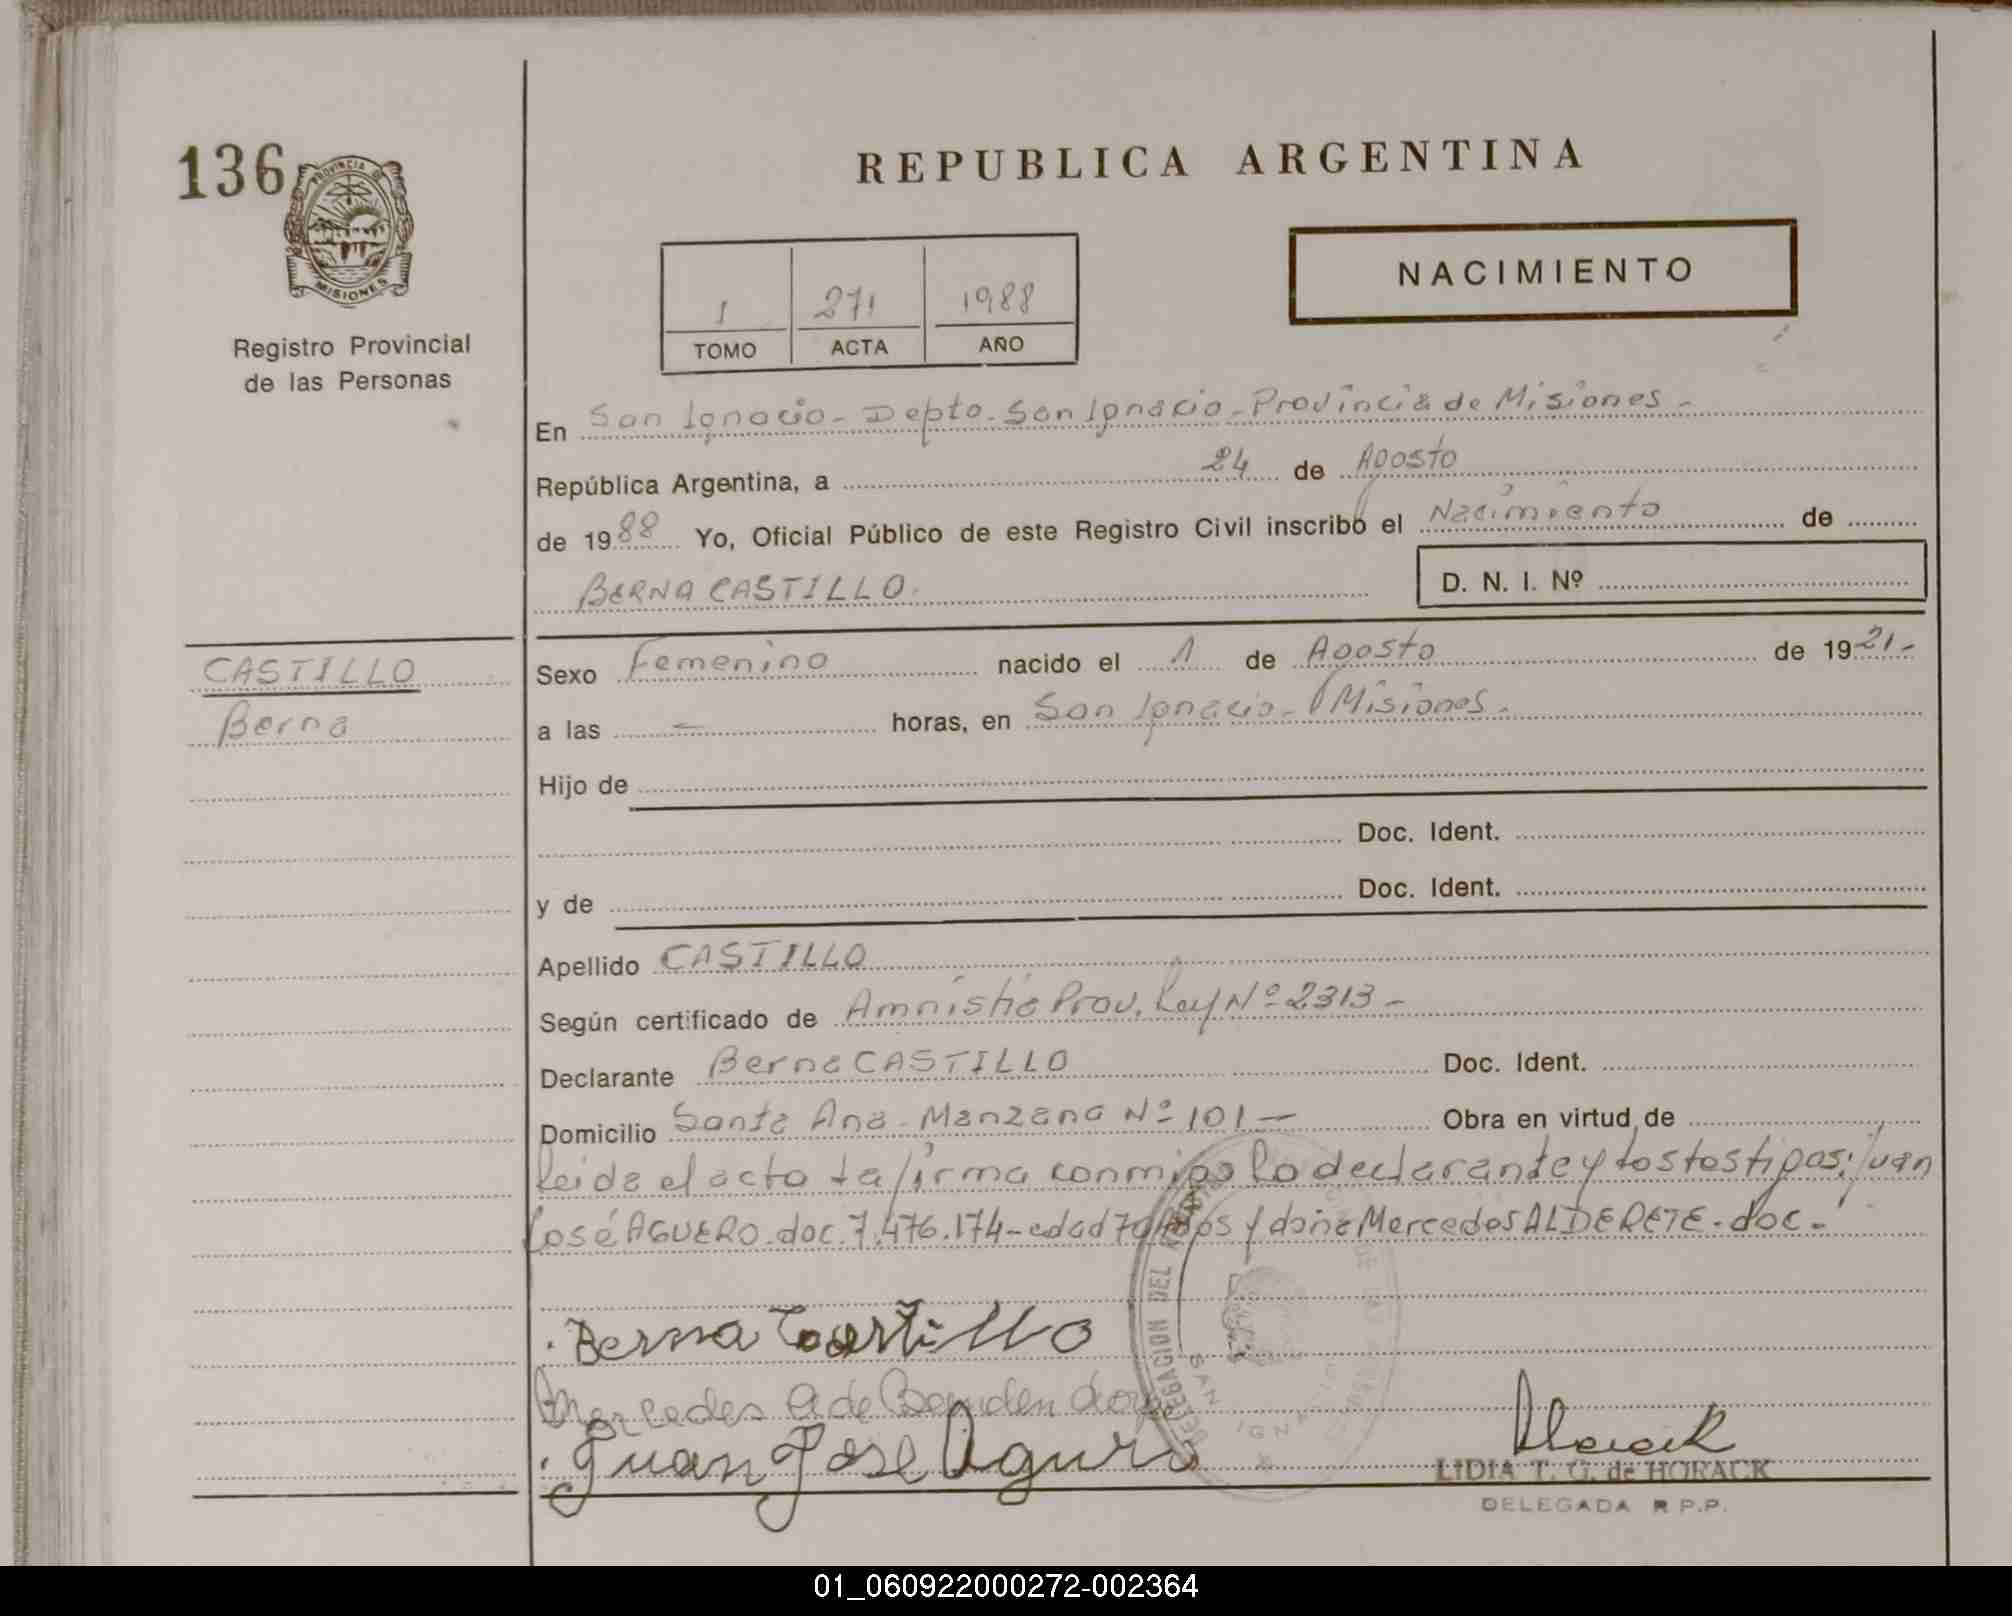 136
PROVINCIA DE
MISIONES
Registro Provincial
de las Personas
REPUBLICA ARGENTINA
NACIMIENTO
1 271 1988
TOMO ACTA AÑO
En San Ignacio - Depto. San Ignacio - Provincia de Misiones -
República Argentina, a 24 de Agosto
de 1988 Yo, Oficial Público de este Registro Civil inscribo el Nacimiento de
BERNA CASTILLO.
D. N. I. Nº
CASTILLO
Berna
Sexo Femenino nacido el 1 de Agosto de 1921 -
a las - horas, en San Ignacio - Misiones.
Hijo de
Doc. Ident.
y de Doc. Ident.
Apellido CASTILLO
Según certificado de Amnistia Prov. Ley Nº 2313 -
Declarante Berna CASTILLO Doc. Ident.
Domicilio Santa Ana - Manzana Nº 101 - Obra en virtud de
Leida el acta la firma conmigo la declarante y los testigos: Juan
José AGUERO. doc. 7.476.174 - edad años y doña Mercedes ALDERETE. doc. -
Berna Castillo
Mercedes A de
Juan Jose Aguero
DELEGACION DEL
SAN IGNACIO
LIDIA T. G. de HORACK
DELEGADA R.P.P.
01_060922000272-002364